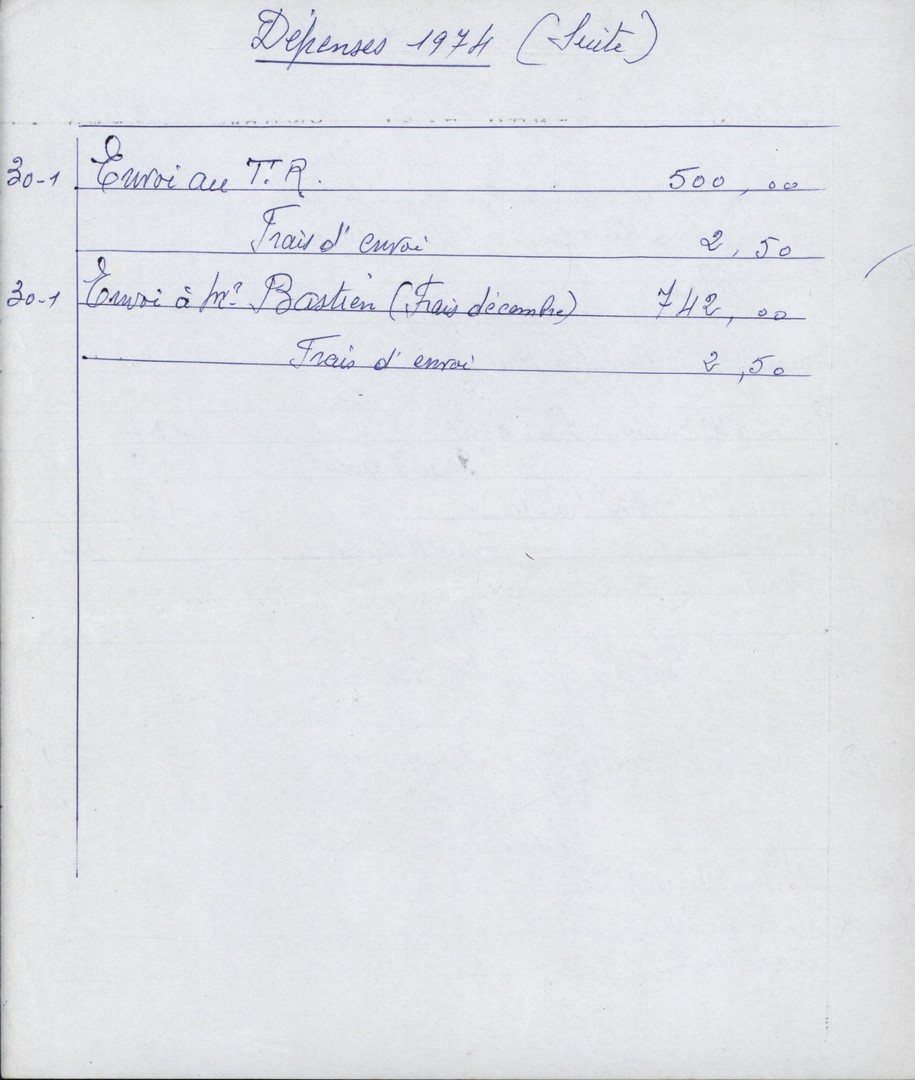 Dépenses 1974 (Suite)
30-1 Envoi au T.R. 500,00
Frais d'envoi 2,50
30-1 Envoi à Mr Bastien (Frais décembre) 742,00
Frais d'envoi 2,50